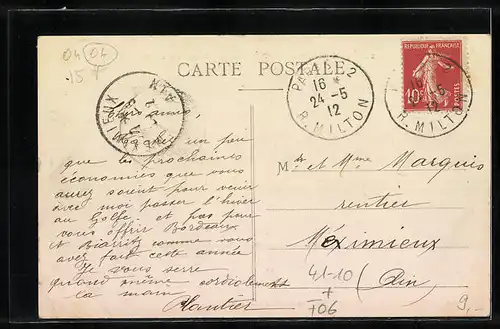 04 04
15
CARTE POSTALE
PARIS 2
16 *
24 - 5
12
R. MILTON
RÉPUBLIQUE FRANÇAISE
10c
POSTES
R. MILTON
12
AIN
Chers amis,
un peu
que les prochaines
économies que vous
aurez soient pour venir
avec moi passer l'hiver
au Golfe. et pas pour
vous offrir Bordeaux
et Biarritz comme vous
avez fait cette année
Je vous serre
quand même cordialement
la main
Plantier
Mr et Mme Marquis
rentier
Meximieux
(Ain)
41-10
+
T06
9,-